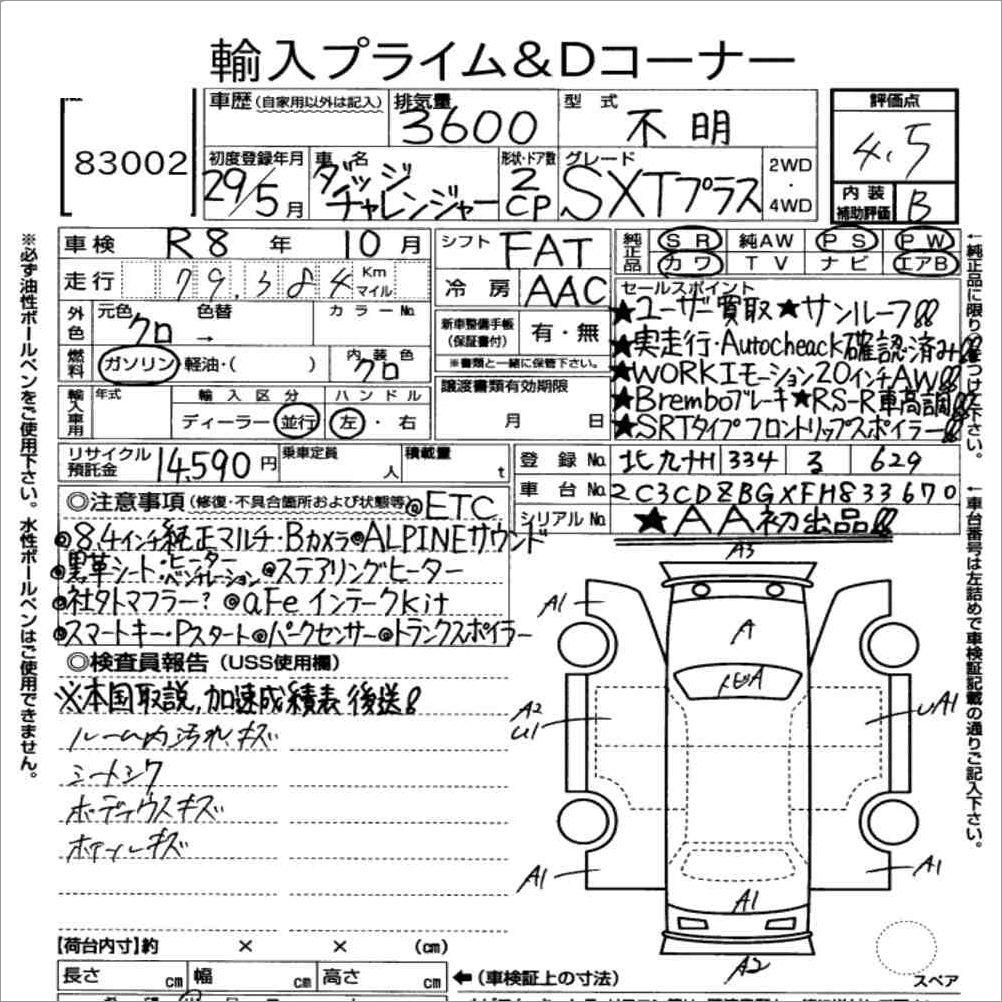 輸入プライム&Dコーナー
83002
車歴(自家用以外は記入)
排気量 3600
型式 不明
評価点 4.5
初度登録年月 29/5月
車名 ダッジ チャレンジャー
形状・ドア数 2 CP
グレード SXTプラス
2WD・4WD
内装補助評価 B
車検 R8年 10月
シフト FAT
純正品 SR 純AW PS PW
カワ TV ナビ エアB
走行 79,384 Km マイル
冷房 AAC
セールスポイント
★ユーザー買取★サンルーフ!!
★実走行・Autocheack確認済み!!
★WORKエモーション20インチAW!!
★Bremboブレーキ★RS-R車高調!!
★SRTタイプフロントリップスポイラー!!
外色 元色 クロ → 色替 カラーNo.
新車整備手帳(保証書付) 有・無
※書類と一緒に保管下さい。
燃料 ガソリン 軽油・( ) 内装色 クロ
譲渡書類有効期限 月 日
輸入車用 年式 輸入区分 ディーラー 並行 ハンドル 左・右
リサイクル預託金 14,590円 乗車定員 人 積載量 t
登録No. 北九州 334 る 629
車台No. 2C3CDZBGXFH833670
シリアルNo. ★AA初出品!!
◎注意事項(修復・不具合箇所および状態等)
◎ETC
◎8.4インチ純正マルチ・Bカメラ◎ALPINEサウンド
◎黒革シート・ヒーター・ベンチレーション◎ステアリングヒーター
◎社外マフラー?◎aFeインテークkit
◎スマートキー・Pスタート◎パークセンサー◎トランクスポイラー
◎検査員報告(USS使用欄)
※本国取説,加速成績表 後送!
ルーム内汚れ、キズ
シートシワ
ボディウスキズ
ホイールキズ
A3
A1
A
A1
A2
U1
A1
A1
A1
A1
A2
スペア
【荷台内寸】約 × × (cm)
長さ cm 幅 cm 高さ cm ←(車検証上の寸法)
※必ず油性ボールペンをご使用下さい。水性ボールペンはご使用できません。
←車台番号は左詰めで車検証記載の通りご記入下さい。